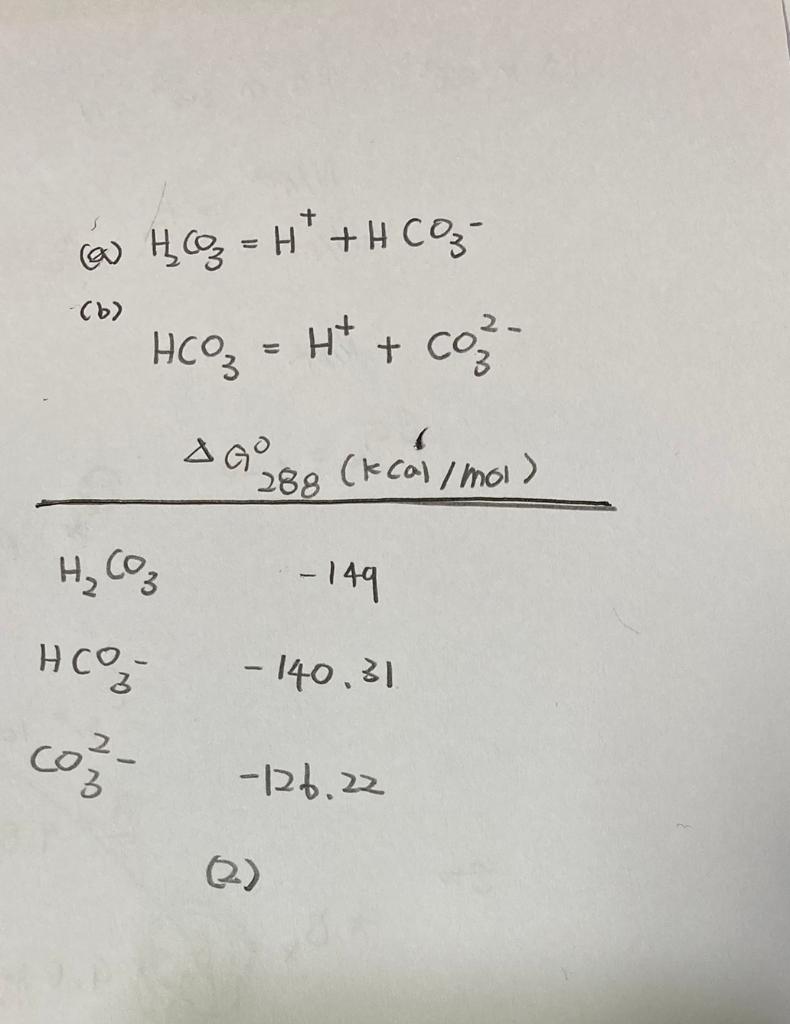 (a) H₂CO₃ = H⁺ + HCO₃⁻
(b)
HCO₃ = H⁺ + CO₃²⁻
ΔG°₂₈₈ (kcal/mol)
H₂CO₃ -149
HCO₃⁻ -140.31
CO₃²⁻ -126.22
(2)